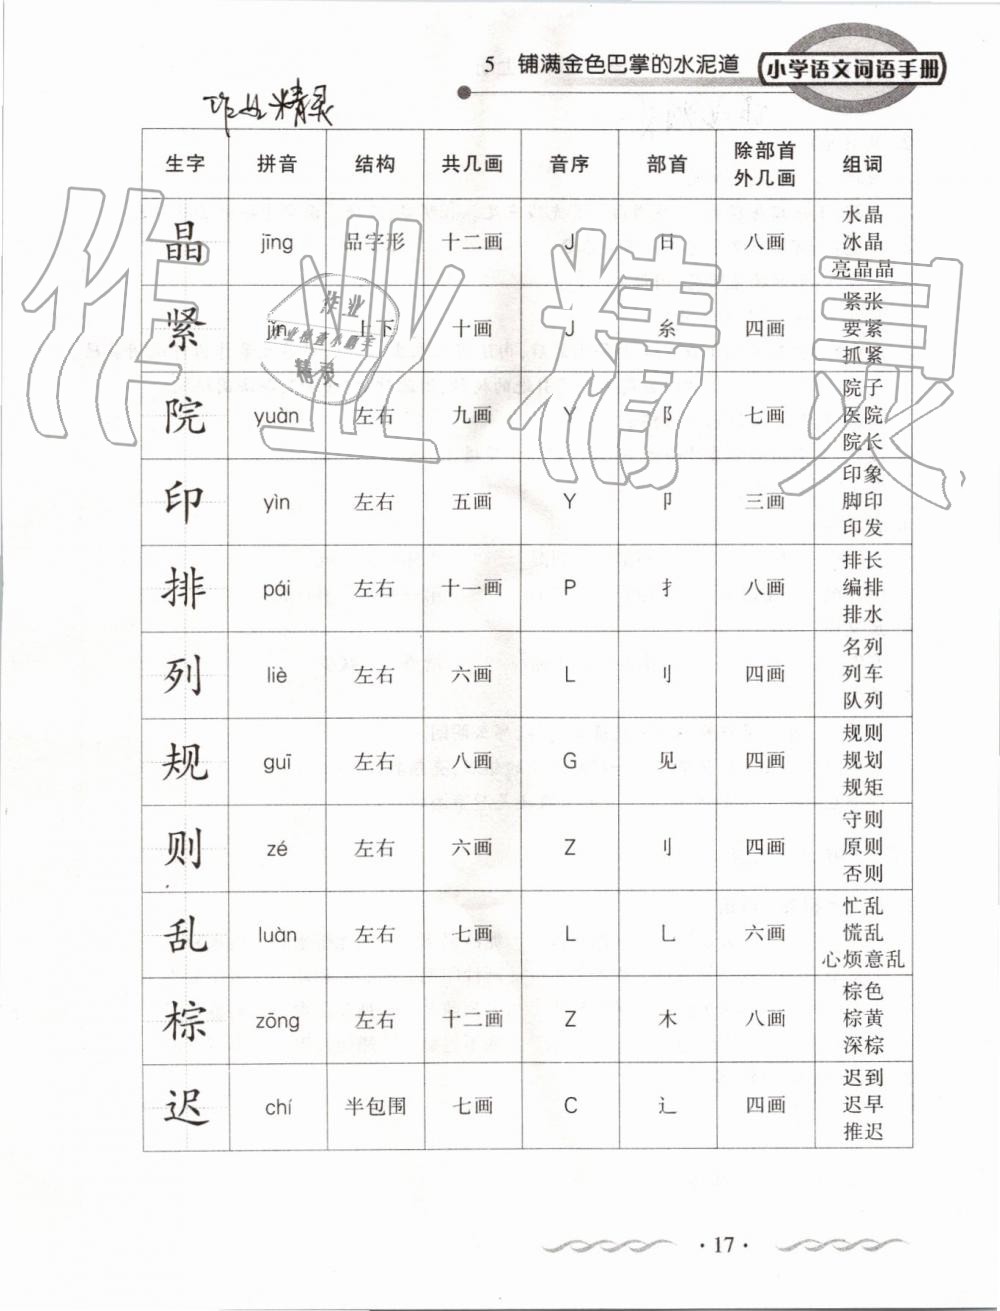 5 铺满金色巴掌的水泥道
小学语文词语手册
作业精灵
生字 拼音 结构 共几画 音序 部首 除部首外几画 组词
晶 jīng 品字形 十二画 J 日 八画 水晶 冰晶 亮晶晶
紧 jǐn 上下 十画 J 糸 四画 紧张 要紧 抓紧
院 yuàn 左右 九画 Y 阝 七画 院子 医院 院长
印 yìn 左右 五画 Y 卩 三画 印象 脚印 印发
排 pái 左右 十一画 P 扌 八画 排长 编排 排水
列 liè 左右 六画 L 刂 四画 名列 列车 队列
规 guī 左右 八画 G 见 四画 规则 规划 规矩
则 zé 左右 六画 Z 刂 四画 守则 原则 否则
乱 luàn 左右 七画 L 乚 六画 忙乱 慌乱 心烦意乱
棕 zōng 左右 十二画 Z 木 八画 棕色 棕黄 深棕
迟 chí 半包围 七画 C 辶 四画 迟到 迟早 推迟
作业精灵
作业
作业检查小霸王
精灵
·17·